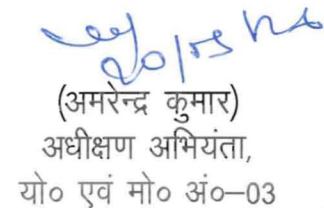 (अमरेन्द्र कुमार)
अधीक्षण अभियंता,
यो० एवं मो० अं०–03